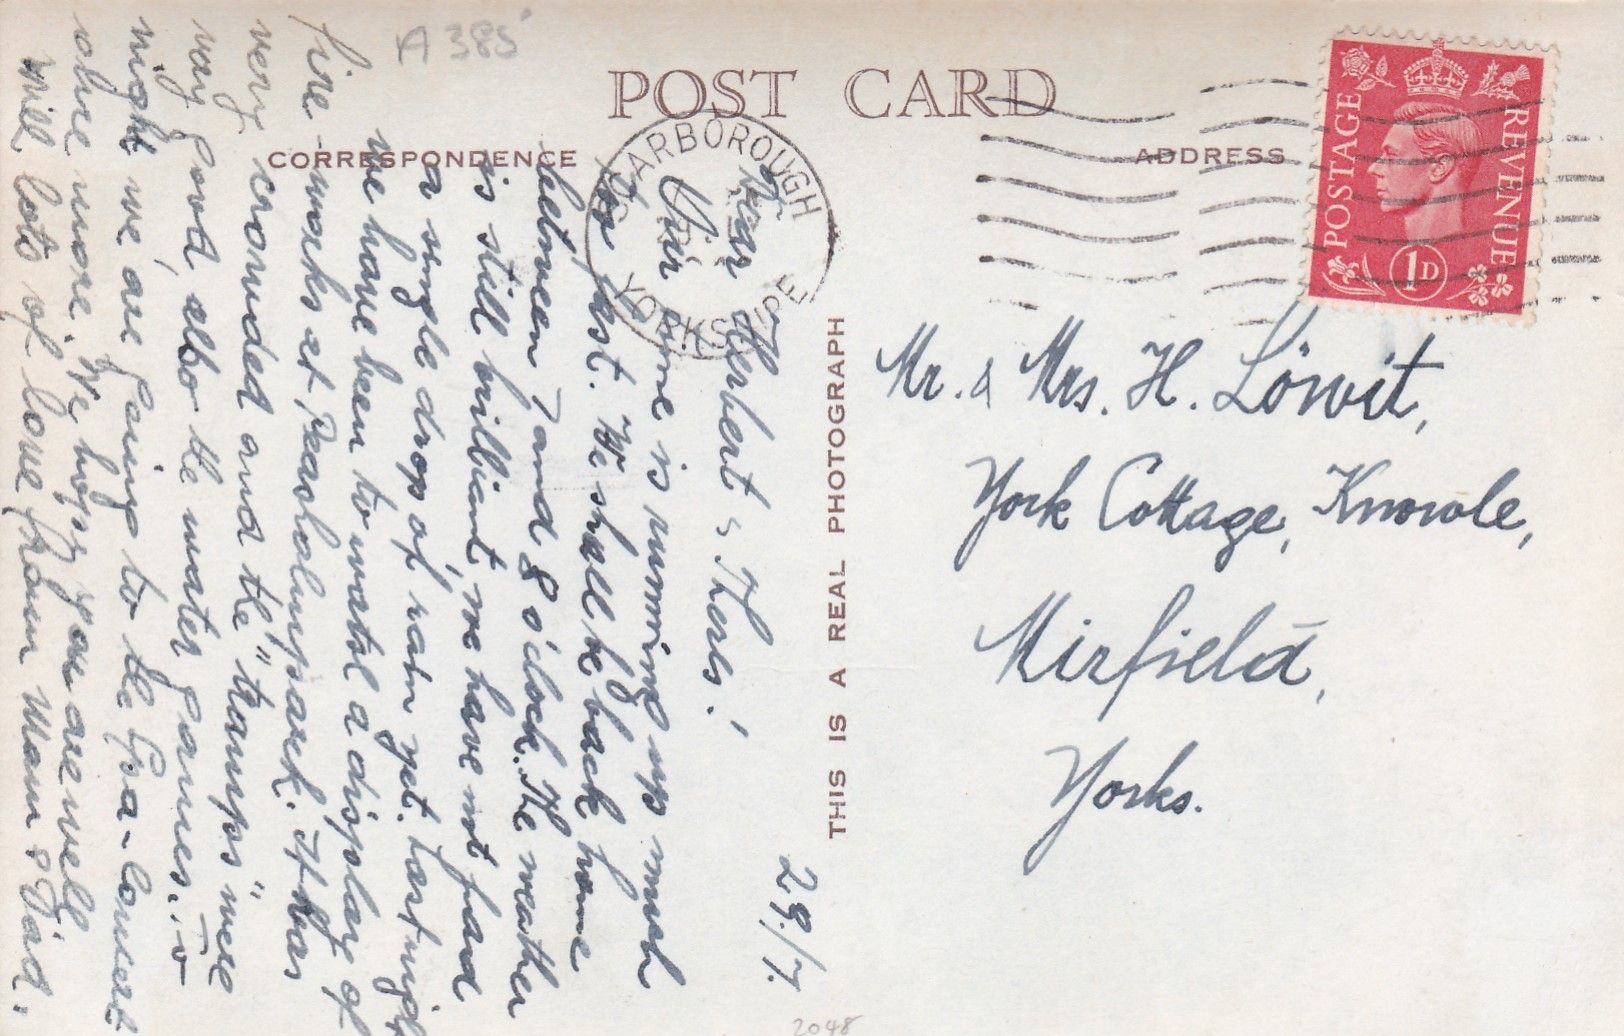 A 385
POST CARD
CORRESPONDENCE
ADDRESS
SCARBOROUGH
YORKSHIRE
POSTAGE
REVENUE
1D
THIS IS A REAL PHOTOGRAPH
29./7.
Dear Herbert & Theres!
Our time is running up much
too fast. We shall be back home
between 7 and 8 o'clock. The weather
is still brilliant, we have not had
a single drop of rain yet. Last night
we have been to watch a display of
fire-works at Peasholmpark. It was
very crowded and the "tramps" were
very good, also the water games. To
night we are going to the Spa-Concert
once more. We hope you are well
with lots of love from Mam & Dad.
Mr. & Mrs. H. Löwit,
York Cottage, Knowle,
Mirfield,
Yorks.
2048